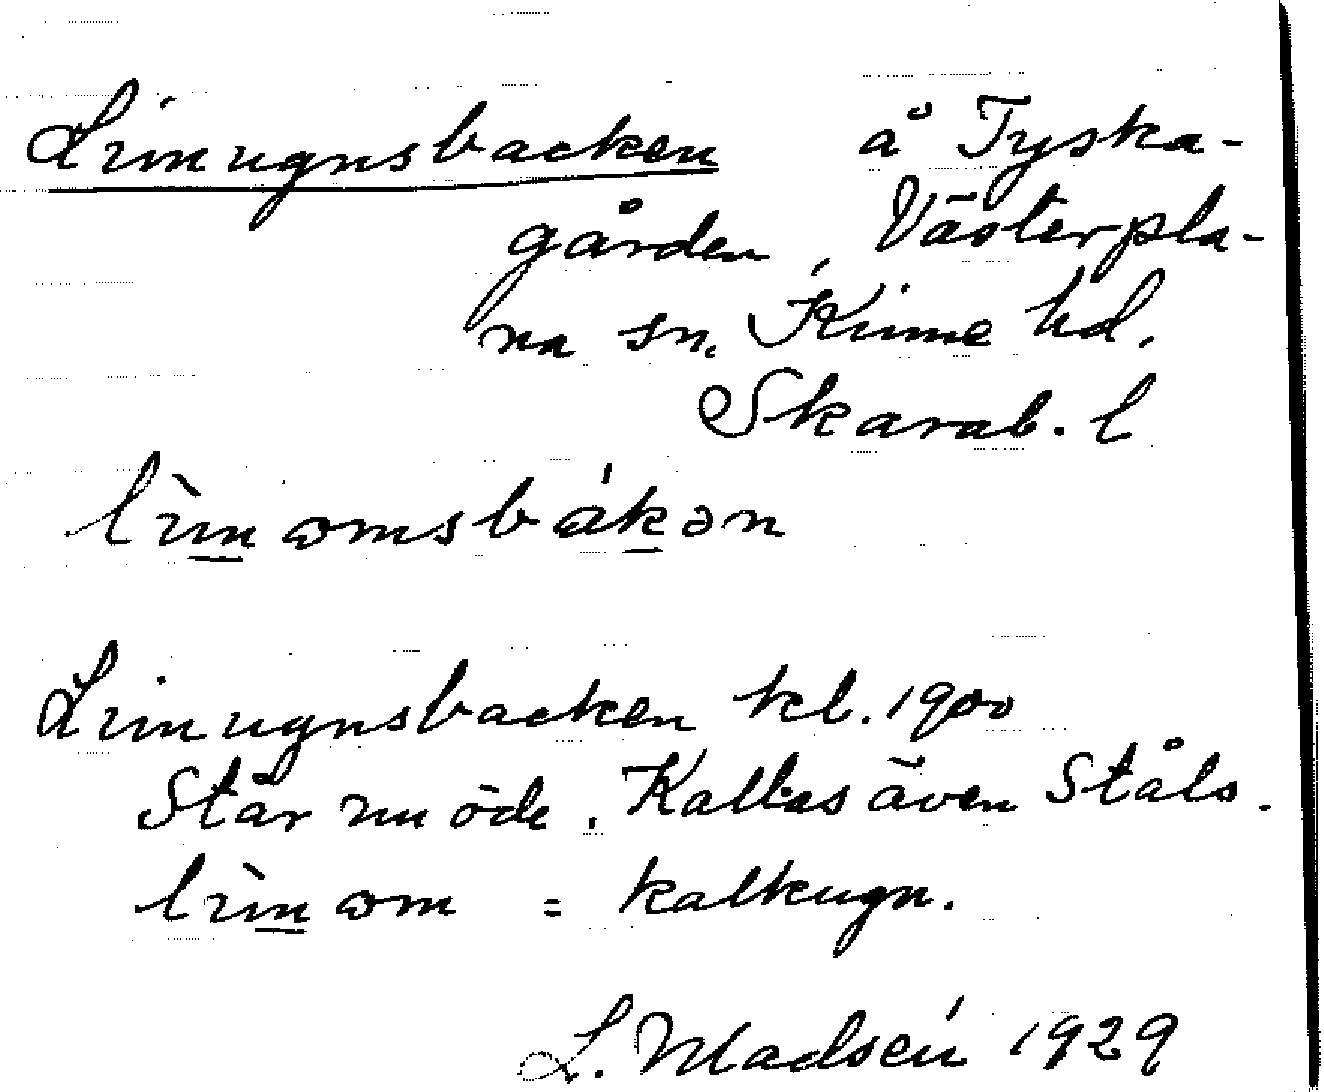 Limugnsbacken å Tyska-
gården, Västerpla-
na sn. Kinne hd.
Skarab. l
lìmɷmsbákən
Limugnsbacken kl. 1900
Står nu öde. Kallas även Ståls.
lìmɷm = kalkugn.
L. Madsén 1929